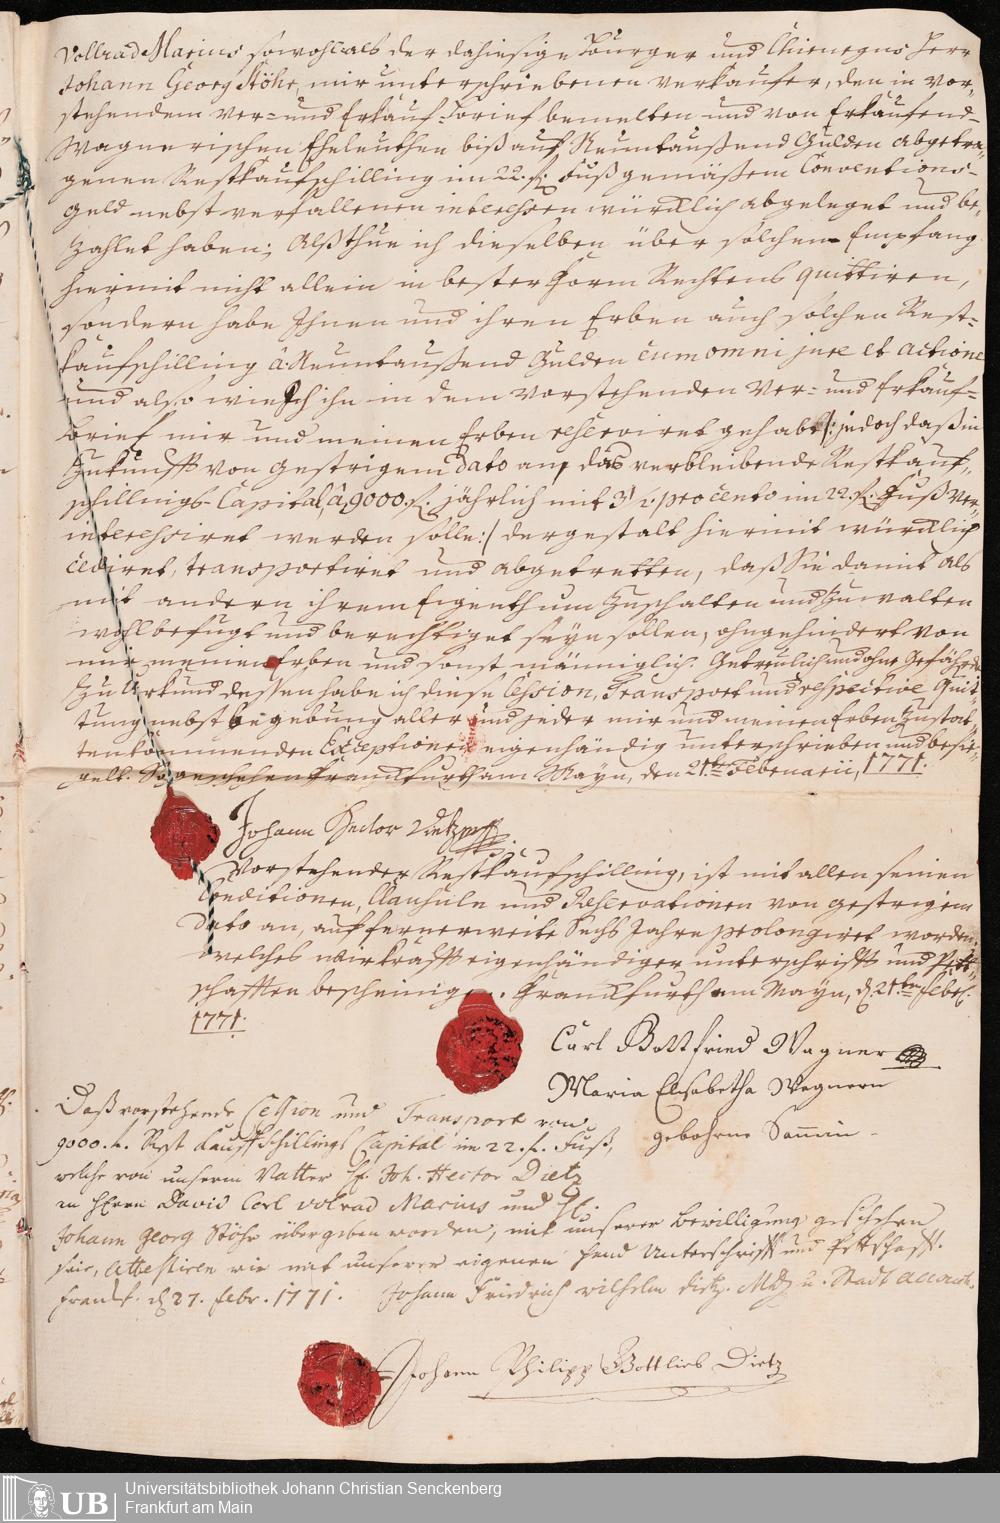 Vollrad Marius sowohl als der dahiesige Burger und Chirurgus Herr
Johann Georg Stöhr, mir unterschriebenen verkaufer, den in vor-
stehendem Ver- und Erkauf-brief bemelten und von Erkaufend-
Wagnerischen Eheleuthen biß auf Neuntaußend Gulden abgetra-
genen Restkaufschilling im 22. f. Fuß gemäßem Conventions-
geld nebst verfallenen interessen würcklich abgeleget und be-
zahlet haben; Alß thue ich dieselben über solchen Empfang
hiermit nicht allein in bester Form Rechtens quittiren,
sondern habe Ihnen und ihren Erben auch solchen Rest-
kaufschilling â Neuntaußend Gulden cum omni jure et actione
und also wie Ich ihn in dem vorstehenden Ver- und Erkauf-
brief mir und meinen Erben reserviret gehabt /: jedoch daß in
Zukunfft von gestrigem dato an, das verbleibende Restkauf-
schillings-Capital, â 9000. f. jährlich mit 3 1/2 pro cento im 22. f. Fuß ver-
interessiret werden solle :/ dergestalt hiermit würcklich
cediret, transportiret und abgetretten, daß Sie damit als
mit andern ihrem Eigenthum zu schalten und zu walten
wohl befugt und berechtiget seyn sollen, ohngehindert von
mir, meinen Erben und sonst männiglich. Getreulich und ohne Gefährde
Zu Urkund dessen habe ich diese Cession, Transport und respective Quit-
tung nebst begebung aller und jeder mir und meinen Erben zustat-
ten kommenden Exceptionen eigenhändig unterschrieben und besie-
gelt. So geschehen Franckfurth am Mayn, den 21ten Februarii, 1771.
Johann Hector Dietz
Vorstehender Restkaufschilling, ist mit allen seinen
Conditionen, Clausuln und Reservationen von gestrigem
dato an, auf fernerweite Sechs Jahre prolongiret worden.
welches wir kräfft eigenhändiger unterschrifft und Pett-
schafften bescheinigen. Franckfurth am Mayn, d. 21ten Febr.
1771.
Carl Gottfried Wagner
Maria Elisabetha Wagnern
gebohrne
Daß vorstehende Cession und Transport von
9000. f. Rest Kauffschillings Capital im 22. f. Fuß,
welche von unserm Vatter H. Joh. Hector Dietz
an Herrn David Carl Volrad Marius und H.
Johann Georg Stöhr übergeben worden, mit unserer Bewilligung geschehen
seie, attestiren wir mit unserer eigenen Hand Unterschrifft und Pettschafft.
Franckf. d. 27. Febr. 1771. Johann Friedrich Wilhelm Dietz. u. Stadt
Johann Philipp Gottlieb Dietz
UB
Universitätsbibliothek Johann Christian Senckenberg
Frankfurt am Main